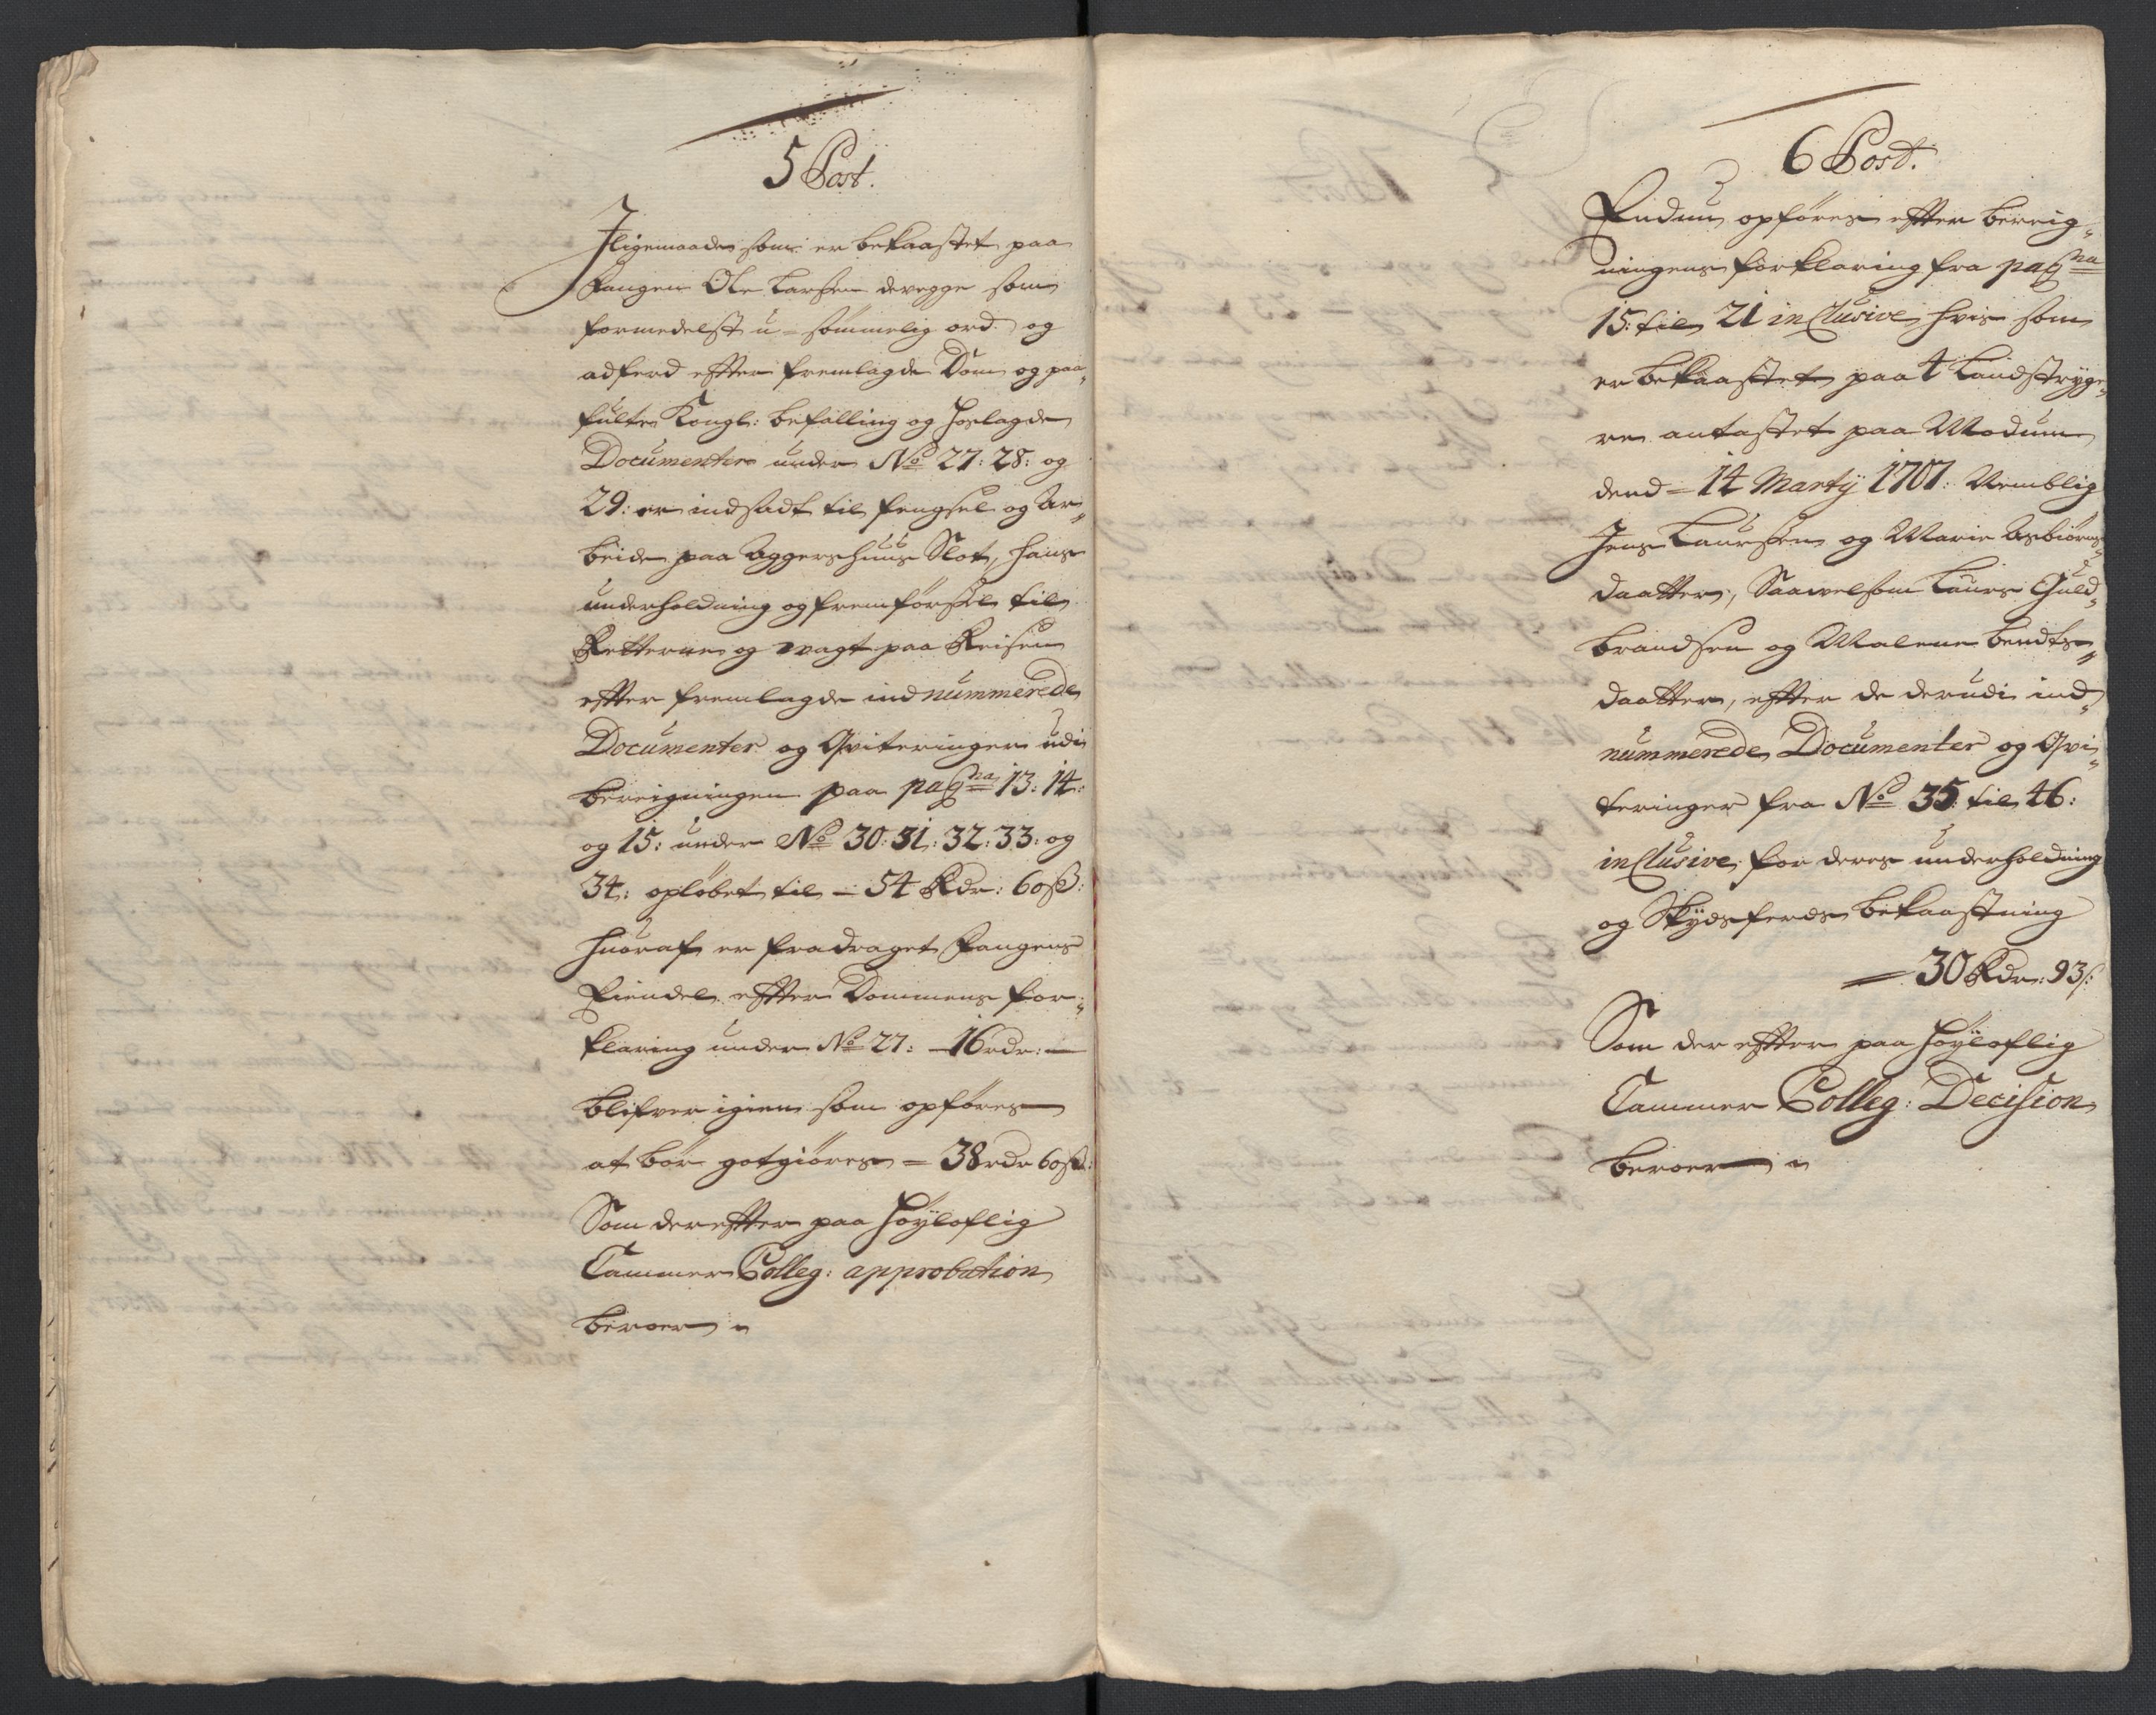 5 Post.
Jligemaade som er bekaastet paa
Fangen Ole Larsen devegge som
formedelst u-sømmelig ord og
adferd efter fremlagde Dom og paa„
fulte Kongl: befalling og hoslagde
Documenter under No 27: 28: og
29: er indsadt til fengsel og Ar„
beide paa Aggershuus Slot, hans
underholdning og fremførsel til
Retterne og wagt paa Reisen
efter fremlagde indnummerede
Documenter og Qviteringer udi
bereigningen paa pagna 13: 14:
og 15: under No 30: 31: 32: 33: og
34: opløbet til – 54 Rdr: 60 ß:
huoraf er fradraget Fangens
Eiendel efter Dommens for„
klaring under No 27: – 16 rdr: –
blifver igien som opføres
at bør gotgiøres = 38 rdr 60 ß:
Som derefter paa høyloflig
Cammer Colleg: approbation
beroer
6 Post.
Endnu opføres efter bereig„
ningens forklaring fra pagna
15: til 21 inclusive, hvis som
er bekaastet paa 4 Landstryge„
re antastet paa Modum
dend = 14 Marty 1707: Nemblig
Jens Laursen og Marie Asbiørns„
daatter, Saavelsom Laurs Guld„
brandsen og Malene bendts„
daatter, efter de derudi ind„
nummerede Documenter og Qvi„
teringer fra No 35: til 46:
inclusive, for deres underholdning
og Skydsferds bekaastning
= 30 Rdr: 93 ß:
Som der efter paa høyloflig
Cammer Colleg: Decision
beroer